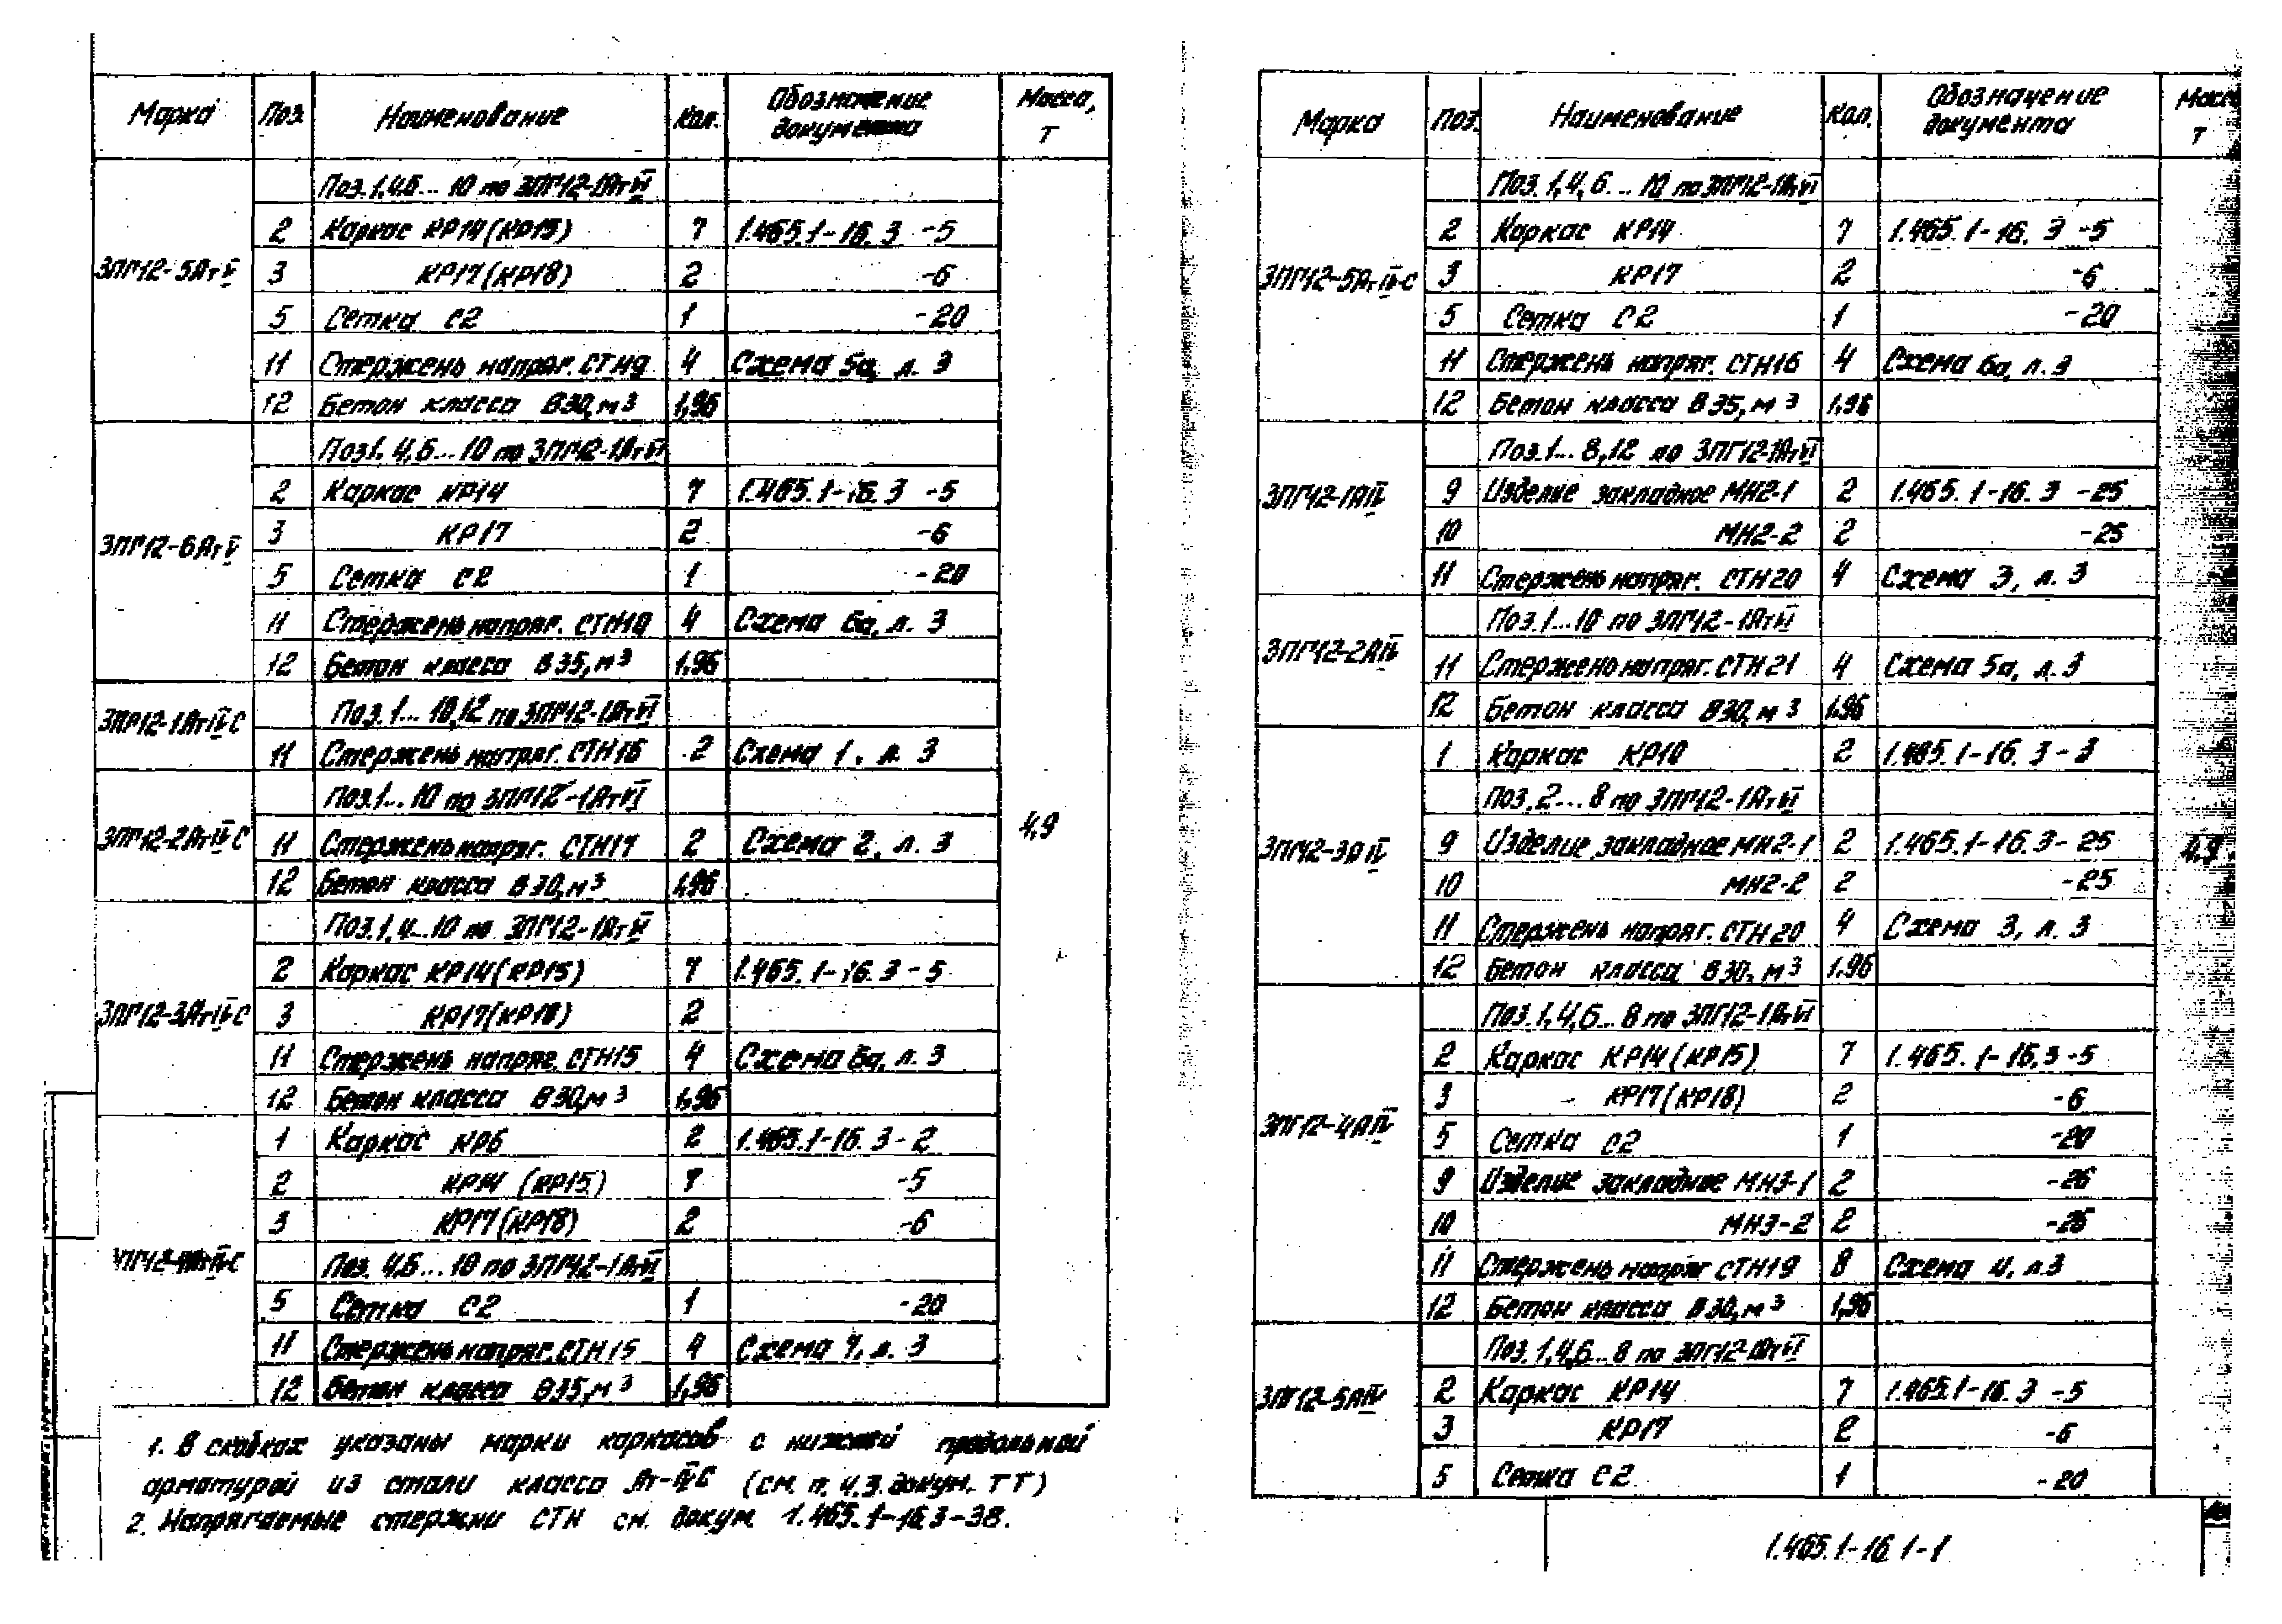 Марка Поз. Наименование Кол. Обозначение документа Масса, т
Поз. 1,4,6... 10 по 3ПГ12-1АтVI
2 Каркас КР14 (КР15) 7 1.465.1-16.3 -5
3ПГ12-5АтV 3 КР17 (КР18) 2 -6
5 Сетка С2 1 -20
11 Стержень напряг. СТН9 4 Схема 5а, л. 3
12 Бетон класса В30, м³ 1,96
Поз. 1, 4,6... 10 по 3ПГ12-1АтVI
2 Каркас КР14 7 1.465.1-16.3 -5
3ПГ12-6АтV 3 КР17 2 -6
5 Сетка С2 1 -20
11 Стержень напряг. 4 Схема 6а, л. 3
12 Бетон класса В35, м³ 1,96
3ПГ12-1АтIVС Поз. 1... 10,12 по 3ПГ12-1АтVI
11 Стержень напряг. СТН16 2 Схема 1, л. 3
Поз. 1... 10 по 3ПГ12-1АтVI
3ПГ12-2АтIVС 11 Стержень напряг. СТН17 2 Схема 2, л. 3 4,9
12 Бетон класса В30, м³ 1,96
Поз. 1, 4...10 по 3ПГ12-1АтVI
2 Каркас КР14 (КР15) 7 1.465.1-16.3 -5
3ПГ12-3АтIVС 3 КР17 (КР18) 2
11 Стержень напряг. СТН15 4 Схема 6а, л. 3
12 Бетон класса В30, м³ 1,96
1 Каркас КР6 2 1.465.1-16.3 -2
2 КР14 (КР15) 7 -5
3 КР17 (КР18) 2 -6
Поз. 4,6... 10 по 3ПГ12-1АтVI
5 Сетка С2 1 -20
11 Стержень напряг. СТН15 4 Схема 7, л. 3
12 Бетон класса В35, м³ 1,96
1. В скобках указаны марки каркасов с нижней продольной
арматурой из стали класса Ат-IVС (см. п. 4.3. докум. ТТ)
2. Напрягаемые стержни СТН см. докум. 1.465.1-16.3-38.
Марка Поз. Наименование Кол. Обозначение документа Масса т
Поз. 1, 4, 6... 10 по 3ПГ12-1АтVI
2 Каркас КР14 7 1.465.1-16.3 -5
3ПГ12-5АтIVС 3 КР17 2 -6
5 Сетка С2 1 -20
11 Стержень напряг. СТН16 4 Схема 6а, л. 3
12 Бетон класса В35, м³ 1,96
Поз. 1... 8,12 по 3ПГ12-1АтVI
3ПГ12-1АIV 9 Изделие закладное МН2-1 2 1.465.1-16.3 -25
10 МН2-2 2 -25
11 Стержень напряг. СТН20 4 Схема 3, л. 3
Поз. 1... 10 по 3ПГ12-1АтVI
3ПГ12-2АIV 11 Стержень напряг. СТН21 4 Схема 5а, л. 3
12 Бетон класса В30, м³ 1,96
1 Каркас КР10 2 1.465.1-16.3 -3
Поз. 2... 8 по 3ПГ12-1АтVI
3ПГ12-3АIV 9 Изделие закладное МН2-1 2 1.465.1-16.3-25 4,9
10 МН2-2 2 -25
11 Стержень напряг. СТН20 4 Схема 3, л. 3
12 Бетон класса В30, м³ 1,96
Поз. 1,4,6... 8 по 3ПГ12-1АтVI
2 Каркас КР14 (КР15) 7 1.465.1-16.3 -5
3 КР17 (КР18) 2 -6
3ПГ12-4АIV 5 Сетка С2 1 -20
9 Изделие закладное МН3-1 2 -26
10 МН3-2 2 -26
11 Стержень напряг СТН19 8 Схема 4, л.3
12 Бетон класса В30, м³ 1,96
Поз. 1,4,6... 8 по 3ПГ12-1АтVI
3ПГ12-5АIV 2 Каркас КР14 7 1.465.1-16.3 -5
3 КР17 2 -6
5 Сетка С2 1 -20
1.465.1-16.1-1